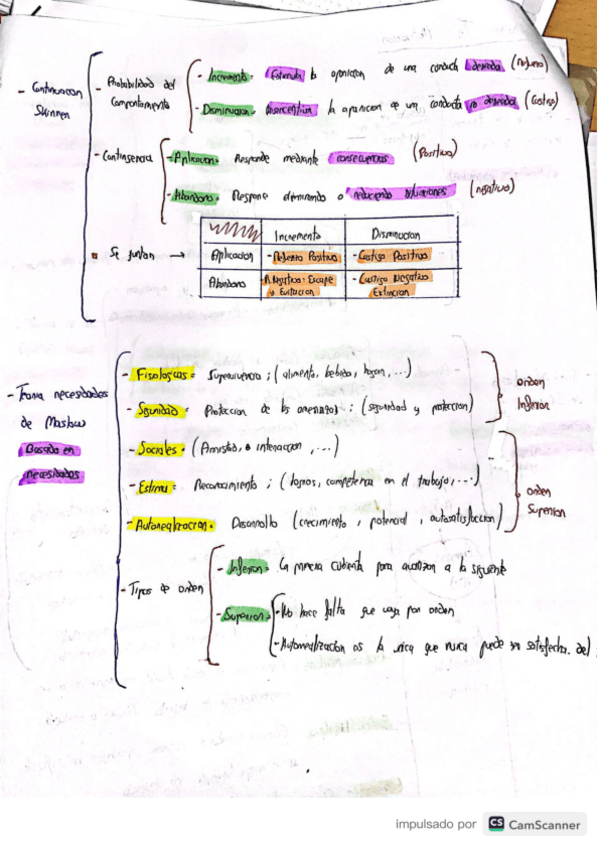 - Continuacion
Skinner
- Probabilidad del
Comportamiento
- Incremento = Estimula la aparicion de una conducta deseada (Refuerzo)
- Disminucion = la aparicion de una conducta no deseada (Castigo)
- Contingencia
- Aplicacion = Responde mediante consecuencias (Positivo)
- Abandono = Respone eliminando o reduciendo (negativo)
Se juntan →
Incremento Disminucion
Aplicacion - Refuerzo Positivo - Castigo Positivo
Abandono - R. Negativo: Escape - Castigo Negativo
y Evitacion Extincion
- Teoria necesidades
de Maslow
Basado en
necesidades
- Fisiologicas = Supervivencia ; ( alimento, bebida, hogar, ...)
- Seguridad = Proteccion de las amenazas ; (seguridad y proteccion)
orden
Inferior
- Sociales = (Amistad, interaccion , ...)
- Estima = Reconocimiento ; ( logros, competencia en el trabajo , ...)
- Autorealizacion = Desarrollo (crecimiento , potencial , autosatisfaccion)
orden
Superior
- Tipos de orden
- Inferior = La primera cubierta para avanzar a la siguiente
- Superior = - No hace falta que vaya por orden
- Autorrealizacion es la unica que nunca puede ser satisfecha. del
impulsado por CS CamScanner